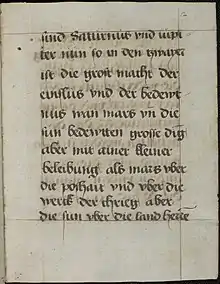 sind Saturnus vnd iupi
ter nun so in den zwayen
ist die grost macht der
einflus vnd der bedewt
nus wan mars vn die
sun bedewtten grosse dig
aber mit ainer kleiner
beleibung als mars vber
die poshait vnd vber die
werck der chrieg aber
die sun vber die land herre